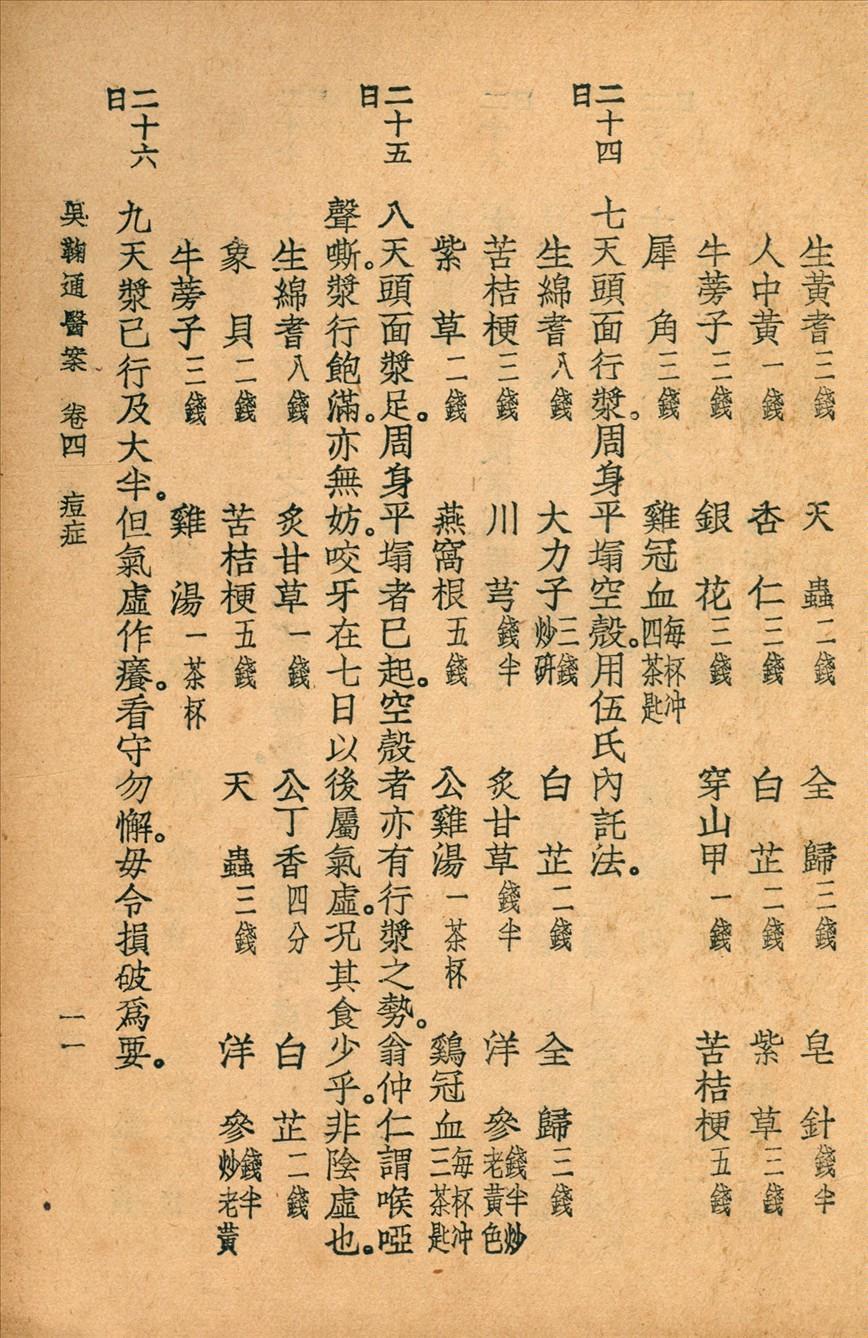 生黃耆三錢　天蟲二錢　全歸三錢　皂針錢半
人中黃一錢　杏仁三錢　白芷二錢　紫草三錢
牛蒡子三錢　銀花三錢　穿山甲一錢　苦桔梗五錢
犀角三錢　雞冠血每杯冲四茶匙
二十四日　七天頭面行漿。周身平塌空殼。用伍氏內託法。
生綿耆八錢　大力子三錢炒研　白芷二錢　全歸三錢
苦桔梗三錢　川芎錢半　炙甘草錢半　洋參錢半炒老黃色
紫草二錢　燕窩根五錢　公雞湯一茶杯　鷄冠血每杯冲三茶匙
二十五日　八天頭面漿足。周身平塌者已起。空殼者亦有行漿之勢。翁仲仁謂喉啞
聲嘶。漿行飽滿。亦無妨。咬牙在七日以後屬氣虛。况其食少乎。非陰虛也。
生綿耆八錢　炙甘草一錢　公丁香四分　白芷二錢
象貝二錢　苦桔梗五錢　天蟲三錢　洋參錢半炒老黃
牛蒡子三錢　雞湯一茶杯
二十六日　九天漿已行及大半。但氣虛作癢。看守勿懈。毋令損破爲要。
吳鞠通醫案　卷四　痘症　一一